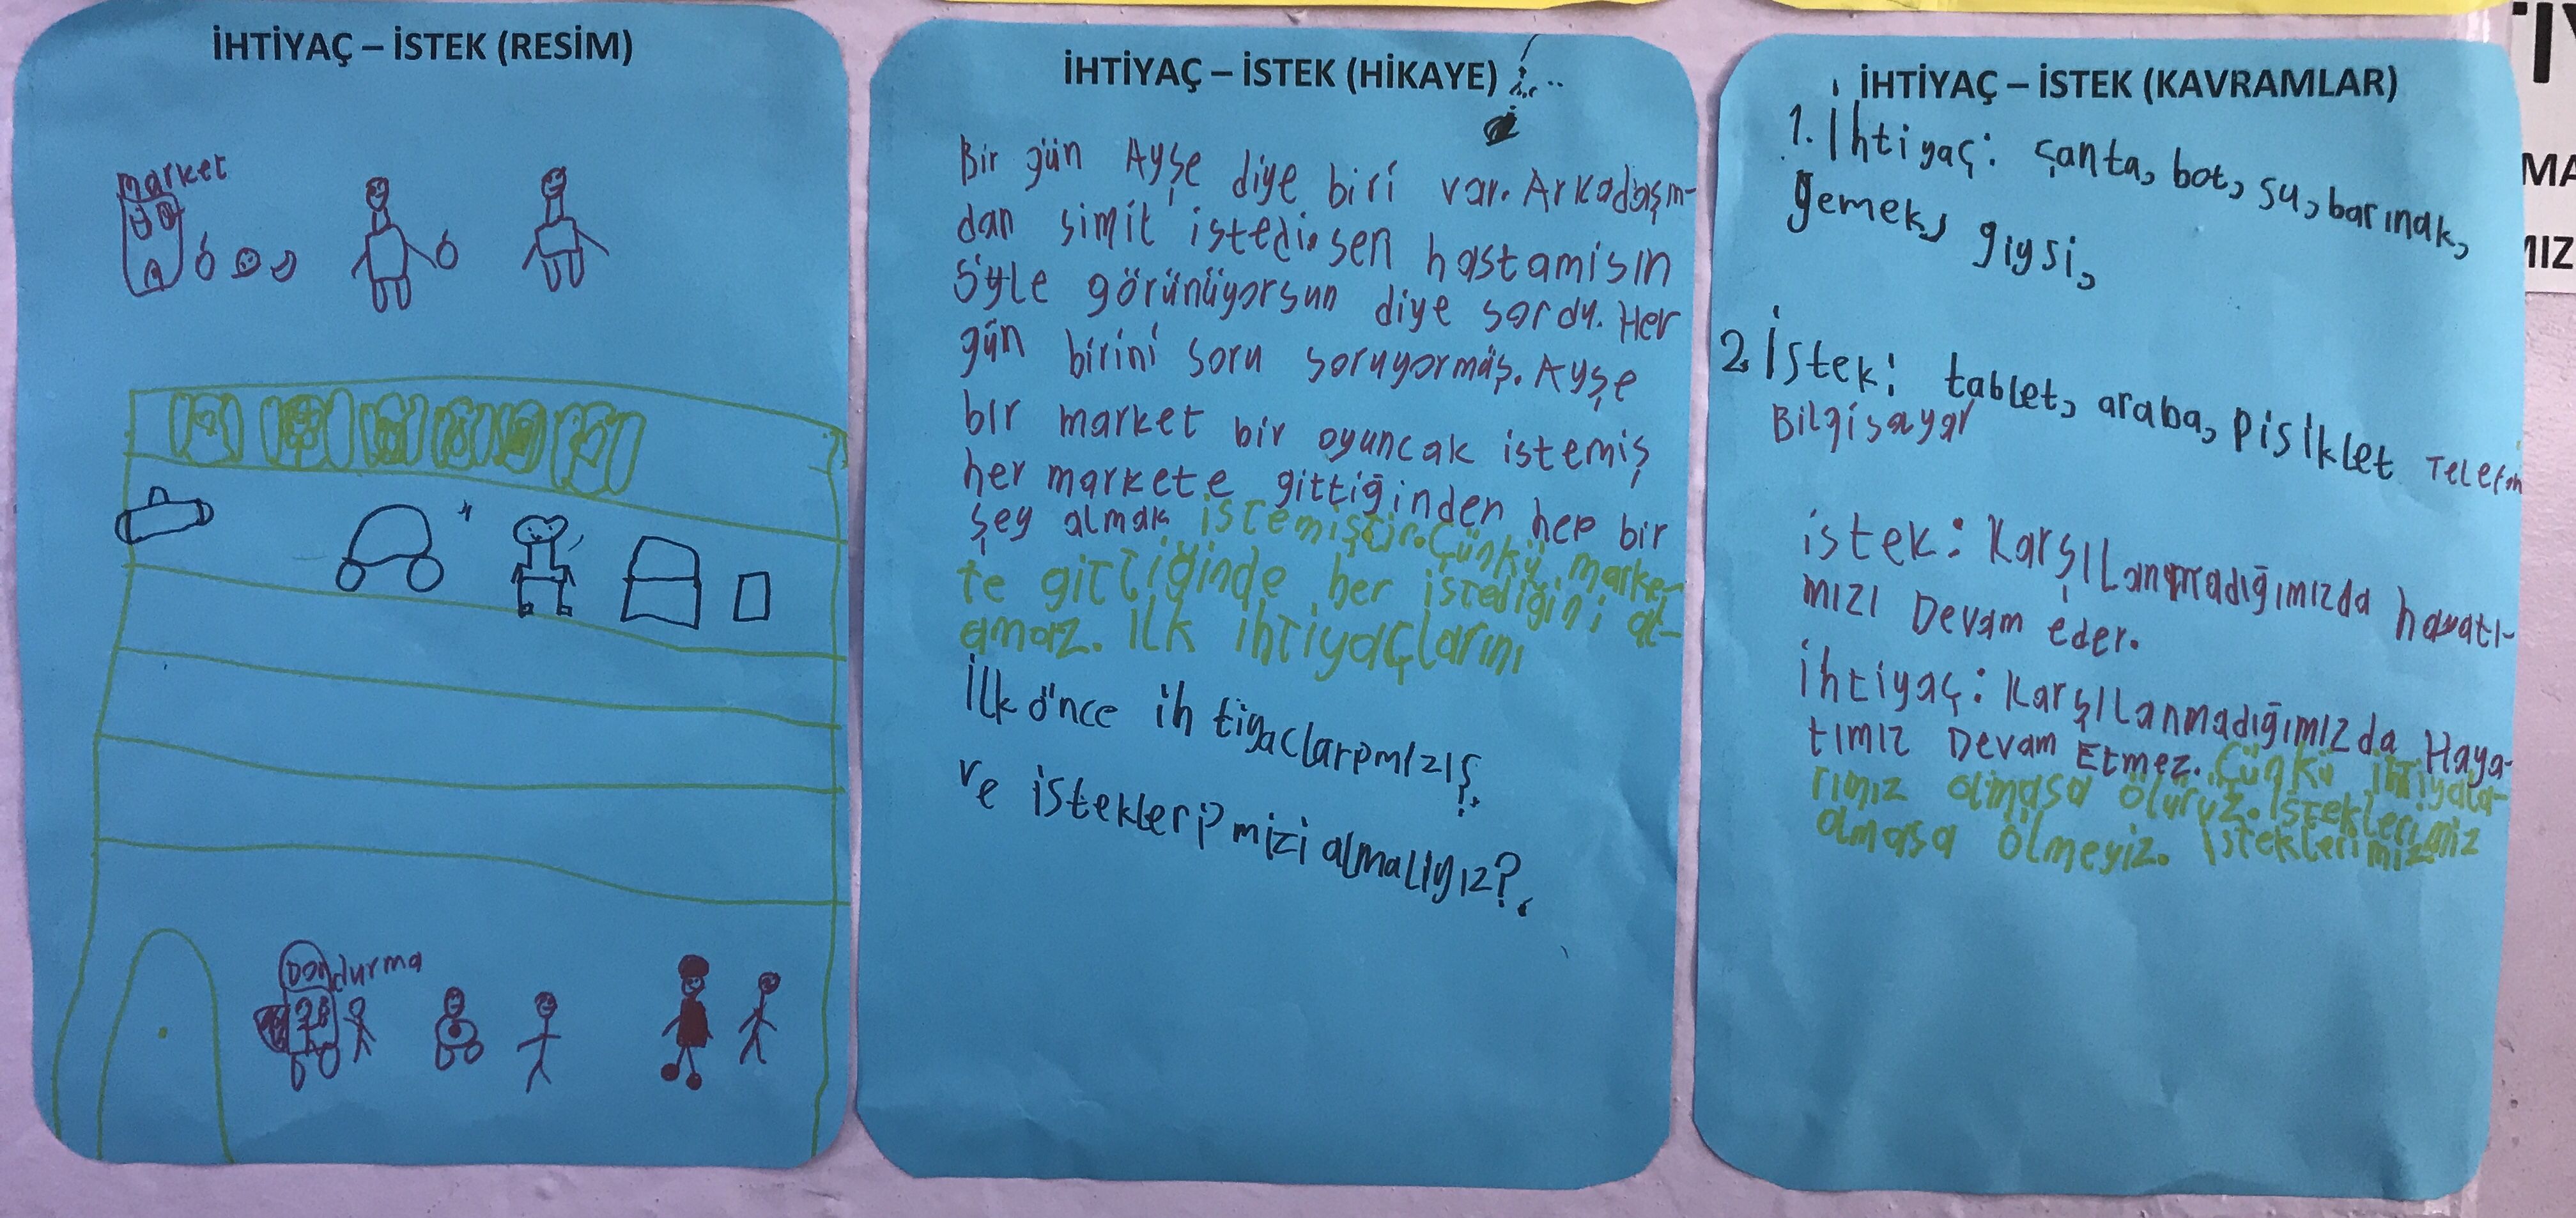 İHTİYAÇ – İSTEK (RESİM)
market
Dondurma
İHTİYAÇ – İSTEK (HİKAYE)
Bir gün Ayşe diye biri var. Arkadaşın-
dan simit istedi. sen hastamisin
Şöyle görünüyorsun diye sordu. Her
gün birini soru soruyormuş. Ayşe
bir market bir oyuncak istemiş
her markete gittiğinden hep bir
şey almak istemiştir. Çünkü marke-
te gittiğinde her istediğini al-
amaz. İlk ihtiyaçlarını
İlk önce ih tiyaclarımızı
ve istekleri mizi almalıyız?.
İHTİYAÇ – İSTEK (KAVRAMLAR)
1. İhtiyaç: çanta, bot, su, barınak,
yemek, giysi,
2. İstek: tablet, araba, pisiklet Telefon
Bilgisayar
istek: Karşılanmadığımızda hayatı-
mızı Devam eder.
ihtiyaç: Karşılanmadığımızda Haya-
tımız Devam Etmez. Çünkü ihtiyaçla-
rımız olmasa ölürüz. İsteklerimiz
olmasa ölmeyiz. İsteklerimiz
MA
MIZ